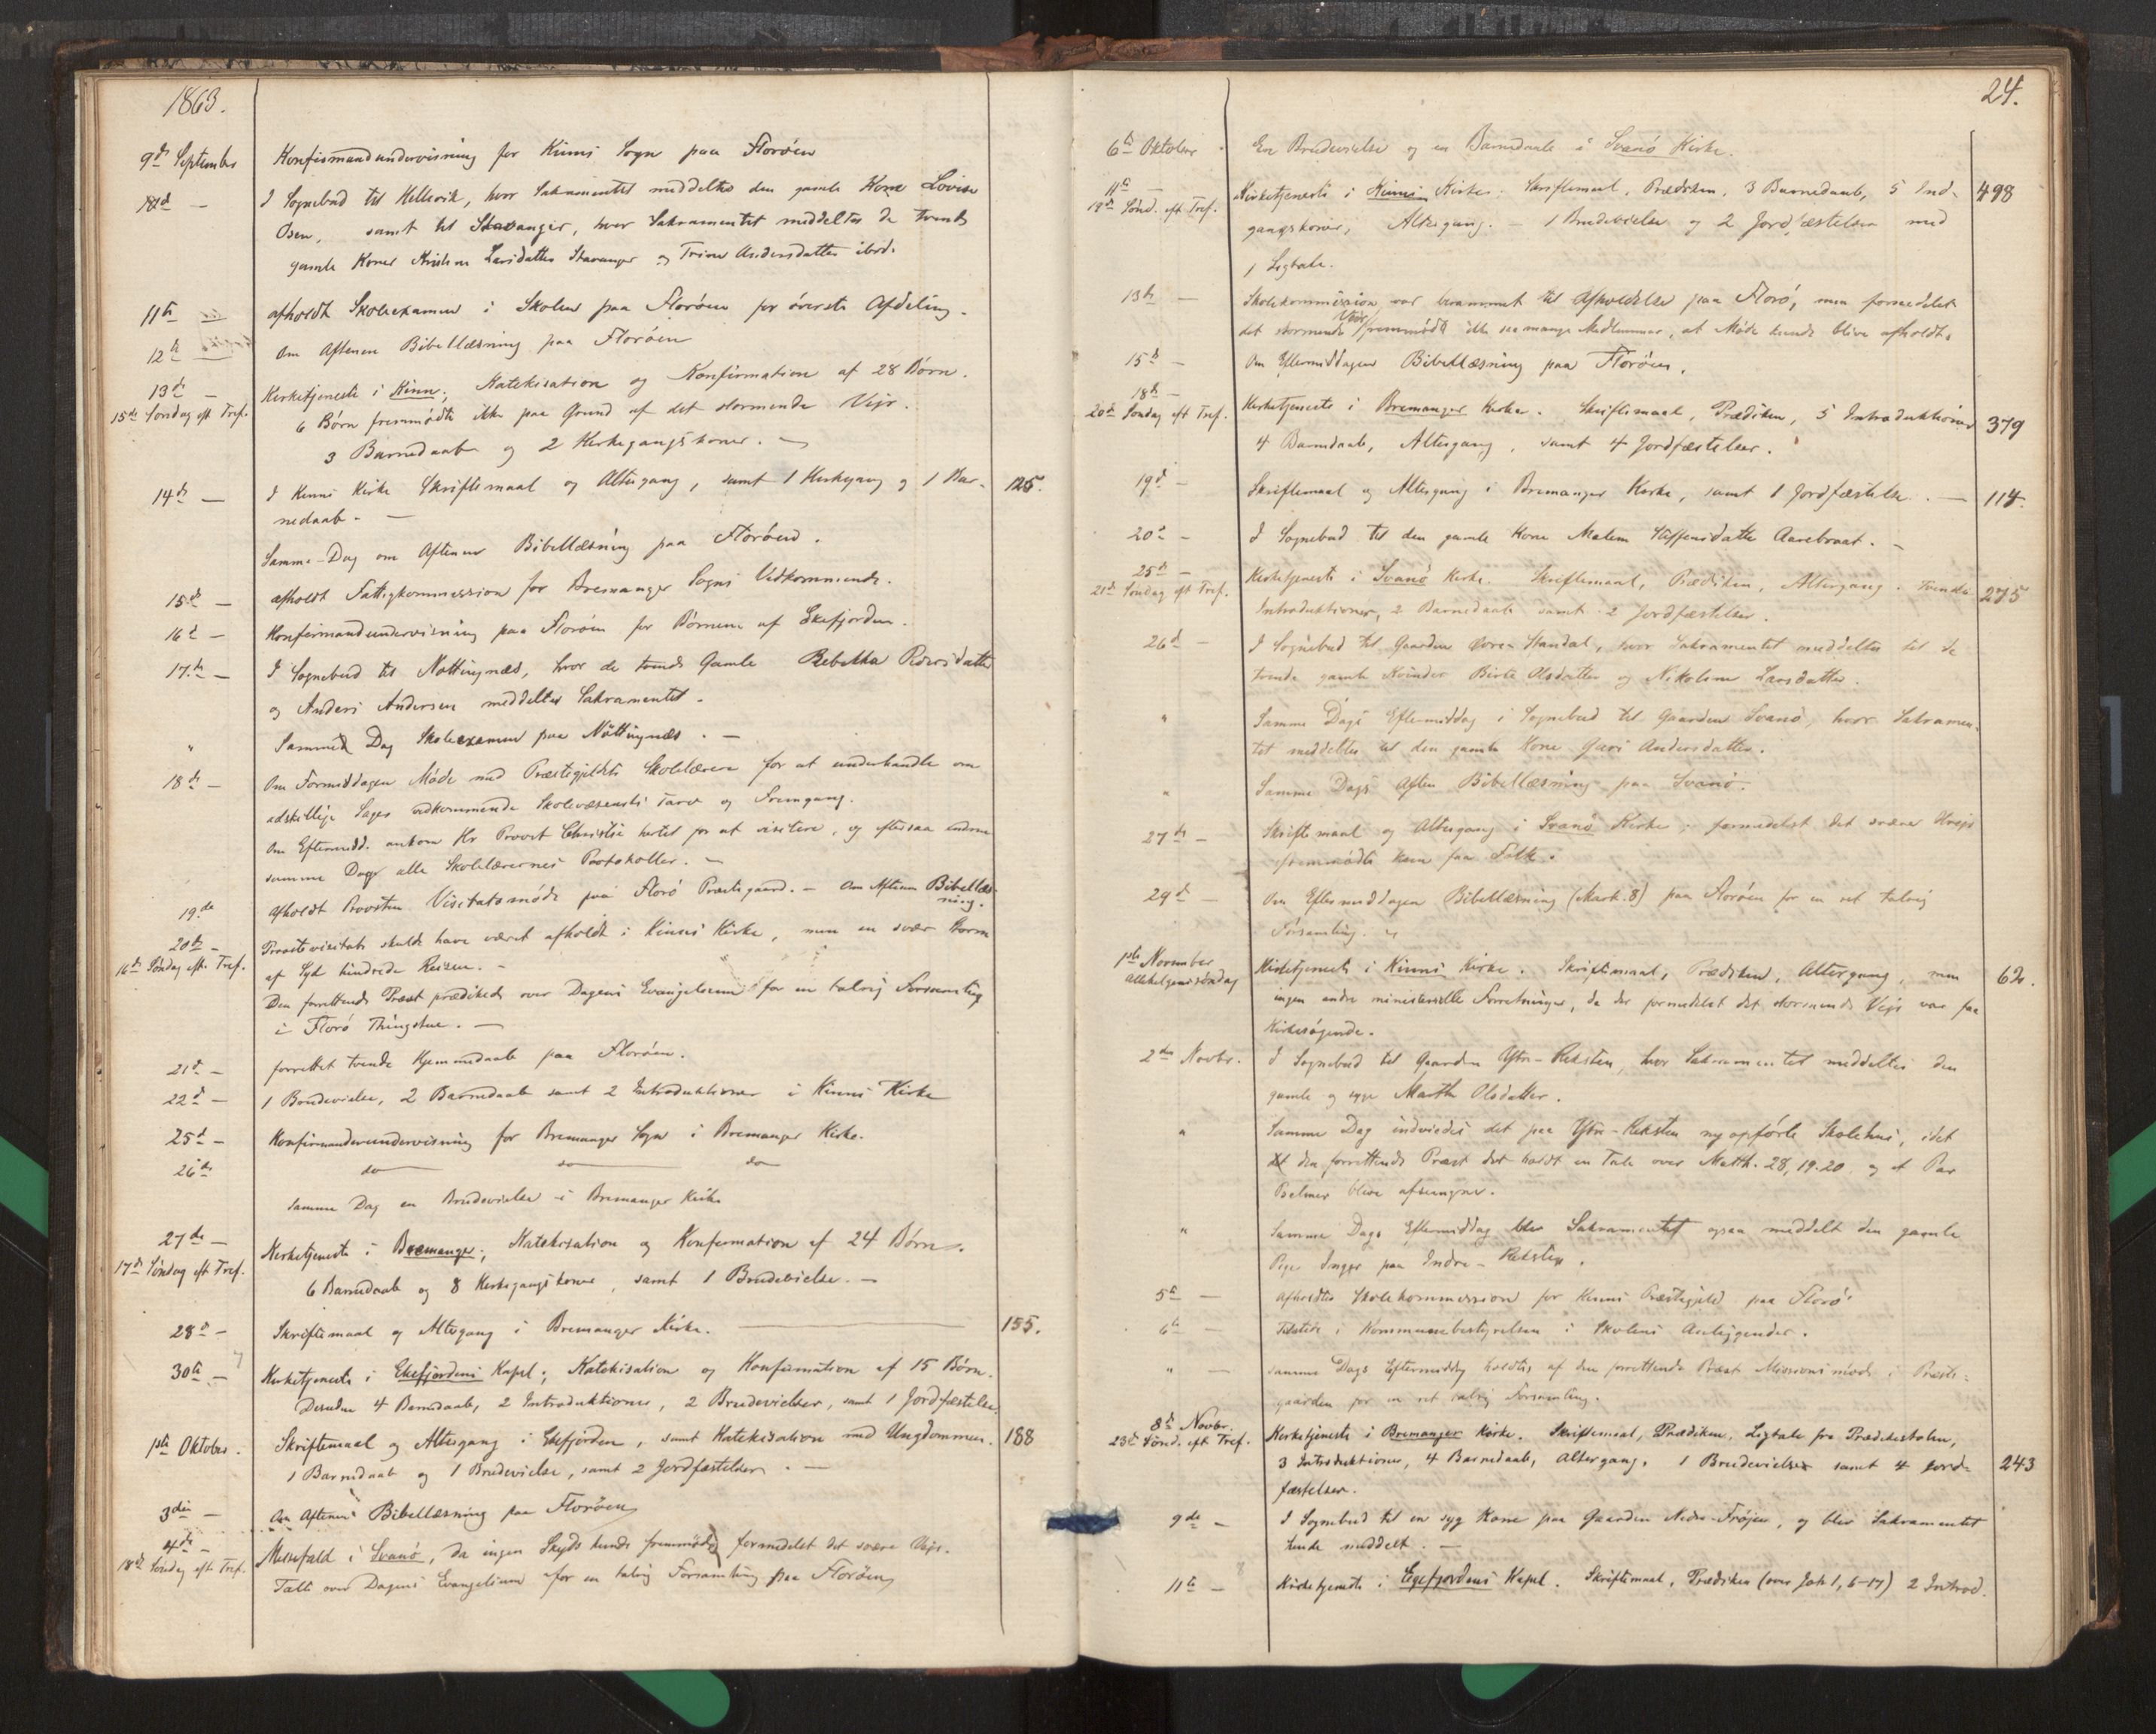 1863.
9de September Konfirmandundervisning for Kinns Sogn paa Florøen
10de — I Sognebud til Hellevik, hvor Sakramentet meddeltes den gamle Kone Lovise
Osen, samt til Stavanger, hvor Sakramentet meddeltes de tvende
gamle Koner Larsdatter Stavanger og Trine Andersdatter ibid.
11te — afholdt Skoleexamen i Skolen paa Florøen for øverste Afdeling.
12te — Om Aftenen Bibellæsning paa Florøen
13de — Kirketjeneste i Kinn; Katekisation og Konfirmation af 28 Børn.
15de Søndag eft Tref. 6 Børn fremmødte ikke paa Grund af det stormende Vejr.
3 Barnedaab og 2 Kirkegangskoner. —
14de — I Kinns Kirke Skriftemaal og Altergang, samt 1 Kirkegang og 1 Bar- 125.
nedaab. —
Samme Dag om Aftenen Bibellæsning paa Florøen.
15de — afholdt Fattigkommission for Bremanger Sogns Vedkommende.
16de — Konfirmandundervisning paa Florøen for Børnene af Ekefjorden.
17de — I Sognebud til Nøttingnæs, hvor de tvende Gamle Rebekka Pedersdatter
og Anders Andersen meddeltes Sakramentet.
" Samme Dag Skoleexamen paa Nøttingnæs. —
18de — Om Formiddagen Møde med Præstegjeldets Skolelærere for at underhandle om
adskillige Sager vedkommende Skolevæsenets Tarv og Fremgang.
Om Eftermidd. ankom Hr Provst Christie hertil for at visitere, og eftersaa endnu
samme Dag alle Skolelærernes Protokoller. —
19de Afholdt Provsten Visitatsmøde paa Florø Præstegaard. — Om Aftenen Bibellæs-
ning.
20de — Provstevisitats skulde have været afholdt i Kinns Kirke, men en svær Storm
16de Søndag eft. Tref. af Syd hindrede Reisen. —
Den forrettende Præst prædikede over Dagens Evangelium for en talrig Forsamling
i Florø Thingstue. —
21de — forrettet tvende Hjemmedaab paa Florøen.
22de — 1 Brudevielse, 2 Barnedaab samt 2 Introduktioner i Kinns Kirke
25de — Konfirmandundervisning for Bremanger Sogn i Bremanger Kirke.
26de do — do — do
samme Dag en Brudevielse i Bremanger Kirke
27de — Kirketjeneste i Bremanger; Katekisation og Konfirmation af 24 Børn.
17de Søndag eft Tref. 6 Barnedaab og 8 Kirkegangskoner, samt 1 Brudevielse. —
28de — Skriftemaal og Altergang i Bremanger Kirke. — 155.
30te — Kirketjeneste i Ekefjordens Kapel; Katekisation og Konfirmation af 15 Børn.
Desuden 4 Barnedaab, 2 Introduktioner, 2 Brudevielser, samt 1 Jordfæstelse.
1ste Oktober. Skriftemaal og Altergang i Ekefjorden, samt Katekisation med Ungdommen. 188
1 Barnedaab og 1 Brudevielse, samt 2 Jordfæstelser. —
3die — Om Aftenen Bibellæsning paa Florøen
4de — Messefald i Svanø, da ingen Skyds kunde fremmøde formedelst det svære Vejr.
18de Søndag eft Tref. Talte over Dagens Evangelium for en talrig Forsamling paa Florøen
24.
6te Oktober En Brudevielse og en Barnedaab i Svanø Kirke.
11te — Kirketjeneste i Kinns Kirke. Skriftemaal, Prædiken, 3 Barnedaab, 5 Ind- 498
19de Sønd. eft Tref. gangskoner, Altergang. — 1 Brudevielse og 2 Jordfæstelser med
1 Ligtale.
13de — Skolekommission var berammet til Afholdelse paa Florø, men formedelst
det stormende Vejr fremmødte ikke saa mange Medlemmer, at Møde kunde blive afholdt.
15de — Om Eftermiddagen Bibellæsning paa Florøen.
18de — Kirketjeneste i Bremanger Kirke. Skriftemaal, Prædiken, 5 Introduktioner 379
20de Søndag eft Tref. 4 Barnedaab, Altergang, samt 4 Jordfæstelser.
19de — Skriftemaal og Altergang i Bremanger Kirke, samt 1 Jordfæstelse. — 114.
20de — I Sognebud til den gamle Kone Malene Steffensdatter Aarebroat. —
25de — Kirketjeneste i Svanø Kirke. Skriftemaal, Prædiken, Altergang. tvende 275
21de Søndag eft Tref. Introduktioner, 2 Barnedaab samt 2 Jordfæstelser.
26de — I Sognebud til Gaarden Standal, hvor Sakramentet meddeltes til de
tvende gamle Kvinder Birte Olsdatter og Nikoline Larsdatter.
" Samme Dags Eftermiddag i Sognebud til Gaarden Svanø, hvor Sakramen-
tet meddeltes til den gamle Kone Guri Andersdatter.
" Samme Dags Aften Bibellæsning paa Svanø.
27de — Skriftemaal og Altergang i Svanø Kirke; formedelst det svære Uvejr
fremmødte kun faa Folk.
29de — Om Eftermiddagen Bibellæsning (Mark. 8) paa Florøen for en ret talrig
Forsamling. —
1ste November Kirketjeneste i Kinns Kirke. Skriftemaal, Prædiken, Altergang, men 62.
Allehelgens søndag ingen andre ministerielle Forretninger, da der formedelst det stormende Vejr var faa
Kirkesøgende.
2den Novbr. I Sognebud til Gaarden Ytre-Reksten, hvor Sakramentet meddeltes den
gamle og syge Marthe Olsdatter.
" Samme Dag indviedes det paa Ytre-Reksten nyopførte Skolehus, idet
den forrettende Præst der holdt en Tale over Matth. 28, 19-20 og et Par
Psalmer bleve afsungne.
" Samme Dags Eftermiddag blev Sakramentet ogsaa meddelt den gamle
Pige Inger paa Indre-Reksten.
5te — afholdtes Skolekommission for Kinns Præstegjeld paa Florø.
6te — Tilstede i Kommunebestyrelsen i Skolens Anliggender.
" — samme Dags Eftermiddag holdtes af den forrettende Præst Missionsmøde i Præste-
gaarden for en ret talrig Forsamling.
8de Novbr. Kirketjeneste i Bremanger Kirke. Skriftemaal, Prædiken, Ligtale fra Prædikestolen,
23de Sønd. eft Tref. 3 Introduktioner, 4 Barnedaab, Altergang, 1 Brudevielse samt 4 Jord- 243
fæstelser.
9de — I Sognebud til en syg Kone paa Gaarden Nedre-Frøjen, og blev Sakramentet
hende meddelt. —
11te — Kirketjeneste i Egefjordens Kapel. Skriftemaal, Prædiken (over Joh 1, 6-17) 2 Introd.